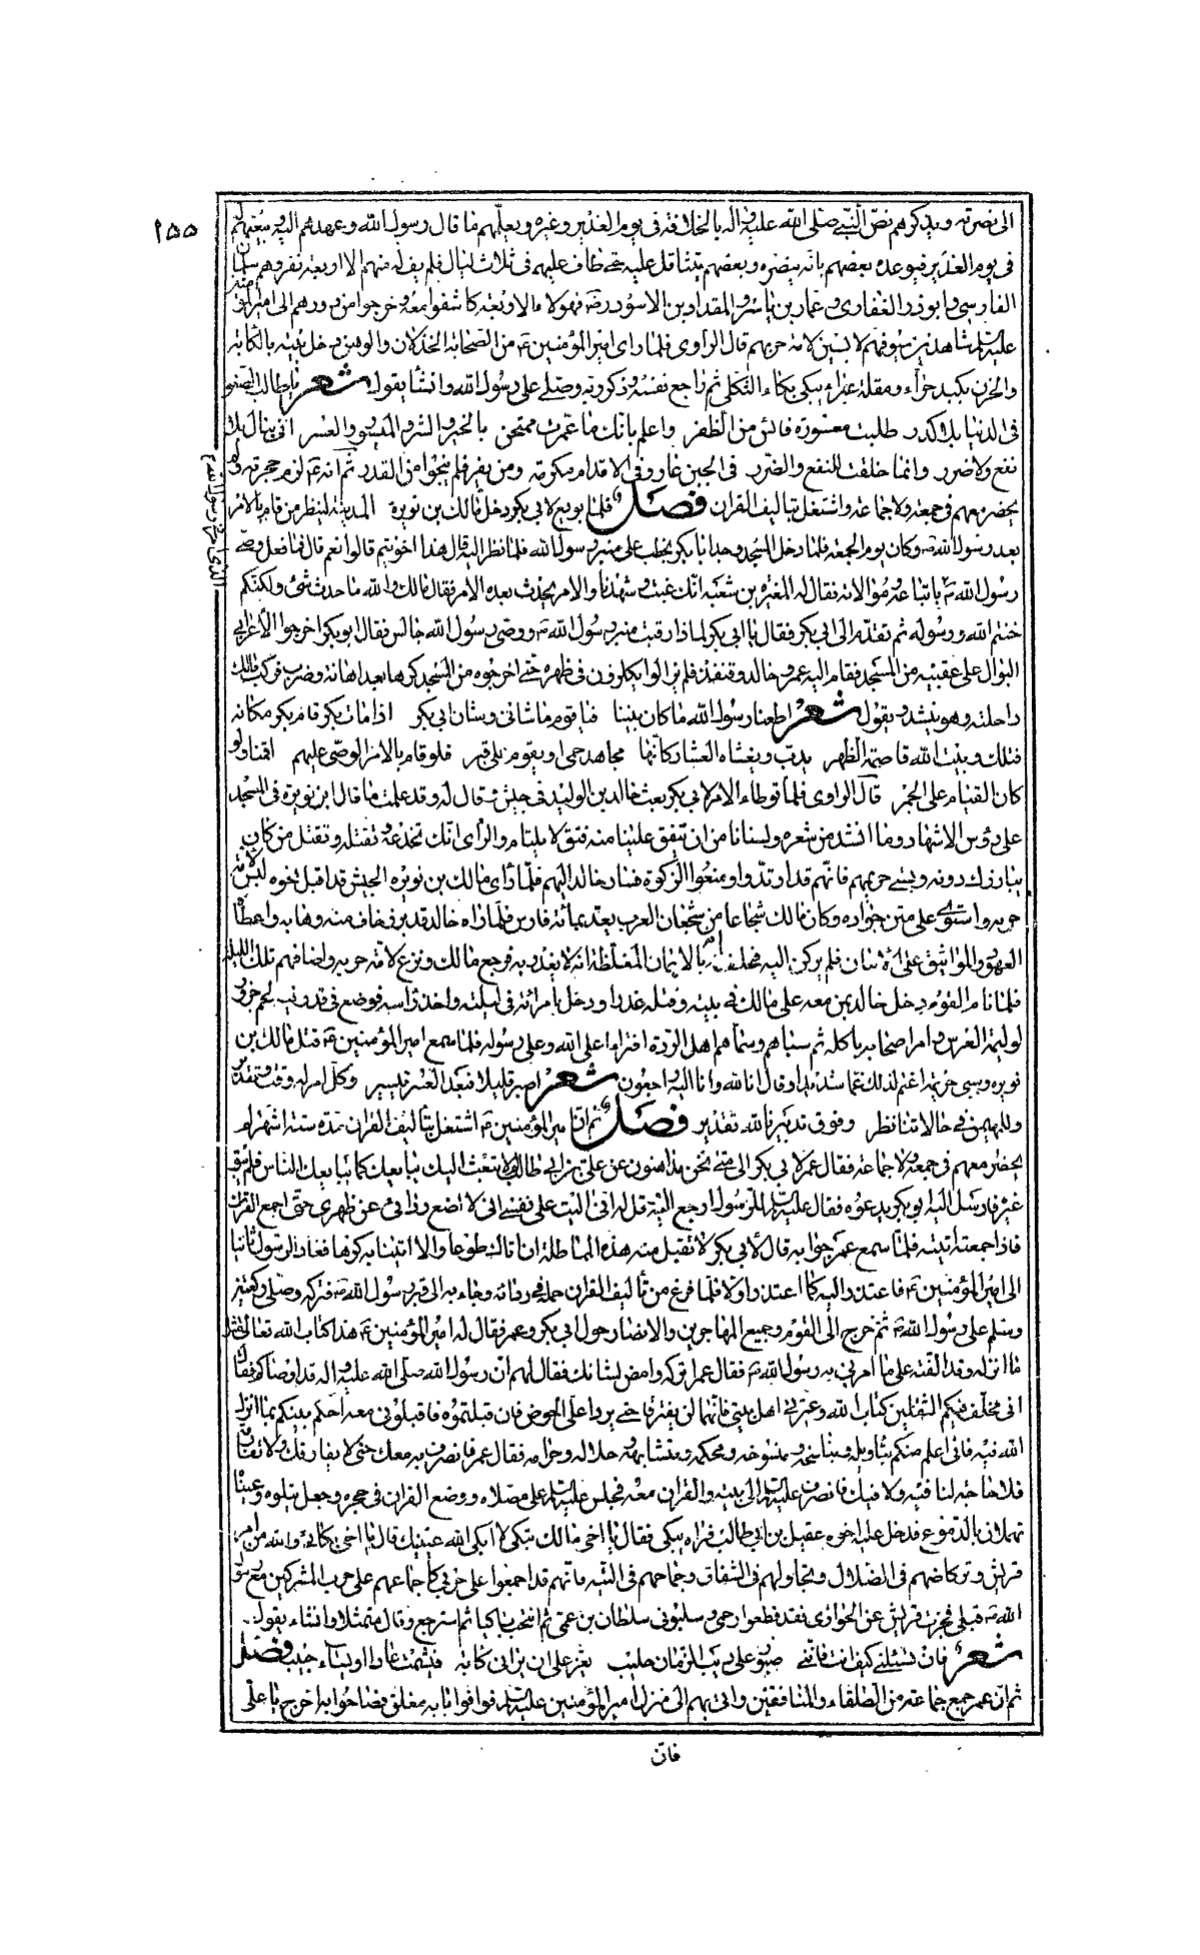 ١٥٥
الى نصرته ويذكرهم نصّ النّبىّ صلى الله عليه واله بالخلافة فى يوم الغدير وغيره ويعلّمهم ما قال رسول الله وعهدهم اليه وبيعتهم له
فى يوم الغدير فيوعده بعضهم بانه ينصره وبعضهم يتثاقل عليه حتى طاف عليهم فى ثلاث ليال فلم يف له منهم الا اربعة نفر وهم سلمان
الفارسى وابوذر الغفارى وعمار بن ياسر والمقداد بن الاسود رض فهؤلاء الاربعة كاشفوا معه وخرجوا من دورهم الى امير المؤمنين
عليه السلام شاهدين سيوفهم لابسين لامة حربهم قال الراوى فلما راى امير المؤمنين ع من الصحابة الخذلان والوهن دخل بيته بالكآبة
والحزن بكبد حرّاء ومقلة عبراء يبكى بكاء الثكلى ثم راجع نفسه وذكر ربه وصلى على رسول الله وانشأ يقول شعر يا طالب الصفو
فى الدنيا بلا كدر طلبت معسورة فائس من الظفر واعلم بانك ما عمرت ممتحن بالخير والشر والميسور والعسر انى ينال بلا
نفع ولا ضرر وانما خلقت للنفع والضرر فى الجبن عار وفى الاقدام مكرمة ومن يفر فلم ينجو من القدر ثم انه ع لزم حجرته ولم
يحضر معهم فى جمعة ولا جماعة واشتغل بتاليف القران فصل فلما بويع لابى بكر دخل مالك بن نويرة المدينة لينظر من قام بالامر
بعد رسول الله ص وكان يوم الجمعة فلما دخل المسجد وجد ابا بكر يخطب على منبر رسول الله فلما نظر اليه قال هذا اخوتيم قالوا نعم قال فما فعل وصى
رسول الله ص باتباعه وموالاته فقال له المغيرة بن شعبة انك غبت وشهدنا والامر يحدث بعده الامر فقال مالك والله ما حدث شئ ولكنكم
خنتم الله ورسوله ثم تقدم الى ابى بكر فقال يا ابى بكر لماذا رقيت منبر رسول الله ص ووصى رسول الله جالس فقال ابو بكر اخرجوا الاعرابى
البوال على عقبيه من المسجد فقام اليه عمر وخالد وقنفذ فلم يزالوا يكزون فى ظهره حتى اخرجوه من المسجد كرها بعد اهانة وضرب فركب مالك
راحلته وهو ينشد ويقول شعر اطعنا رسول الله ما كان بيننا فيا قوم ما شانى وشان ابى بكر اذا مات بكر قام بكر مكانه
فتلك وبيت الله قاصمة الظهر يدب ويغشاه العشار كانما مجاهد جمى او يقوم على قبر فلو قام بالامر الوصى عليهم اقمنا ولو
كان القيام على الجمر قال الراوى فلما توطاء الامر لابى بكر بعث خالد بن الوليد فى جيش ثم قال له وقد علمت ما قال ابن نويرة فى المسجد
على رؤس الاشهاد وما انشد من شعره ولسنا نامن ان ينفق علينا منه فتق لا يلتام والراى انك تخدعه وتقتله وتقتل من كان
يبارزك دونه وتسبى حريمهم فانهم قد ارتدوا ومنعوا الزكوة فسار خالد اليهم فلما راى مالك بن نويرة الجيش قد اقبل نحوه لبس لامة
حربه واستوى على متن جواده وكان مالك شجاعا من شجعان العرب يعد بمائة فارس فلما راه خالد قد برز خاف منه وهابه واعطاه
العهود والمواثيق على الامان فلم يركن اليه فحلف له بالايمان المغلظة انه لا يغدر به فرجع مالك ونزع لامة حربه واضافهم تلك الليلة
فلما نام القوم دخل خالد بمن معه على مالك فى بيته وقتله غدرا ودخل بامراته فى ليلته واخذ راسه فوضع فى قدر فيه لحم جزور
لوليمة العرس وامر اصحابه باكله ثم سباهم وسماهم اهل الردة افتراء على الله وعلى رسوله فلما سمع امير المؤمنين ع قتل مالك بن
نويره وسبى حريمه اغتم لذلك غما شديدا وقال انا لله وانا اليه راجعون شعر اصبر قليلا فبعد العسر تيسير وكل امر له وقت وتقدير
وللمهيمن فى حالاتنا نظر وفوق تدبيرنا لله تقدير فصل ثم ان امير المؤمنين ع اشتغل بتاليف القران مدة ستة اشهر لم
يحضر معهم فى جمعة ولا جماعة فقال عمر لابى بكر الى متى نحن مداهنون عن على بن ابى طالب الا تبعث اليك يبايعك كما يبايعك الناس فلم يبق
غيره فارسل اليه ابو بكر يدعوه فقال عليه السلام للرسول ارجع اليه قل له انى اليت على نفسى انى لا اضع ردائى عن ظهرى حتى اجمع القران
فاذا جمعته اتيته فلما سمع عمر جوابه قال لابى بكر لا تقبل منه هذه المماطلة ان اتاك طوعا والا اتينا به كرها فعاد الرسول ثانيا
الى امير المؤمنين ع فاعتذر اليه كما اعتذر اولا فلما فرغ من تاليف القران حمله فى ردائه وجاء به الى قبر رسول الله ص فتركه وصلى ركعتين
وسلم على رسول الله ص ثم خرج الى القوم وجميع المهاجرين والانصار حول ابى بكر وعمر فقال له امير المؤمنين ع هذا كتاب الله تعالى
ما انزله وقد الفته على ما امرنى به رسول الله ص فقال عمر اتركه وامض لشانك فقال لهم ان رسول الله صلى الله عليه واله قد اوصاكم فقال
انى مخلف فيكم الثقلين كتاب الله وعترتى اهل بيتى فانهما لن يفترقا حتى يردا على الحوض فان قبلتموه فاقبلونى معه احكم بينكم بما انزل
الله فيه فانى اعلم منكم بتاويله وبناسخه ومنسوخه ومحكمه ومتشابهه وحلاله وحرامه فقال عمر فانصرف به معك حتى لا يفارقك ولا تفارقه
فلا حاجة لنا فيه ولا فيك فانصرف عليه السلام الى بيته والقران معه فجلس عليه السلام على مصلاه ووضع القران فى حجره وجعل يتلوه وعيناه
تهملان بالدموع فدخل عليه اخوه عقيل بن ابى طالب فراه يبكى فقال يا اخى مالك تبكى لا ابكى الله عينيك قال يا اخى بكائى والله من امر
قريش وتركاضهم فى الضلال وتجاولهم فى الشقاق وجماحهم فى التيه فانهم قد اجمعوا على حربى كاجماعهم على حرب المشركين مع رسول
الله ص قبلى فجزت قريش عن الجوازى فقد قطعوا رحمى وسلبونى سلطان بن عمى ثم انتحب باكيا ثم استرجع وقال متمثلا وانشاء يقول
شعر فان تسئلينى كيف انت فاننى صبور على ريب الزمان صليب يعز على ان يرانى كابة فيشمت عاد او يساء حبيب فصل
ثم ان عمر جمع جماعة من الطلقاء والمنافقين واتى بهم الى منزل امير المؤمنين عليه السلام فوافوا بابه مغلق فصاحوا به اخرج يا على
فان